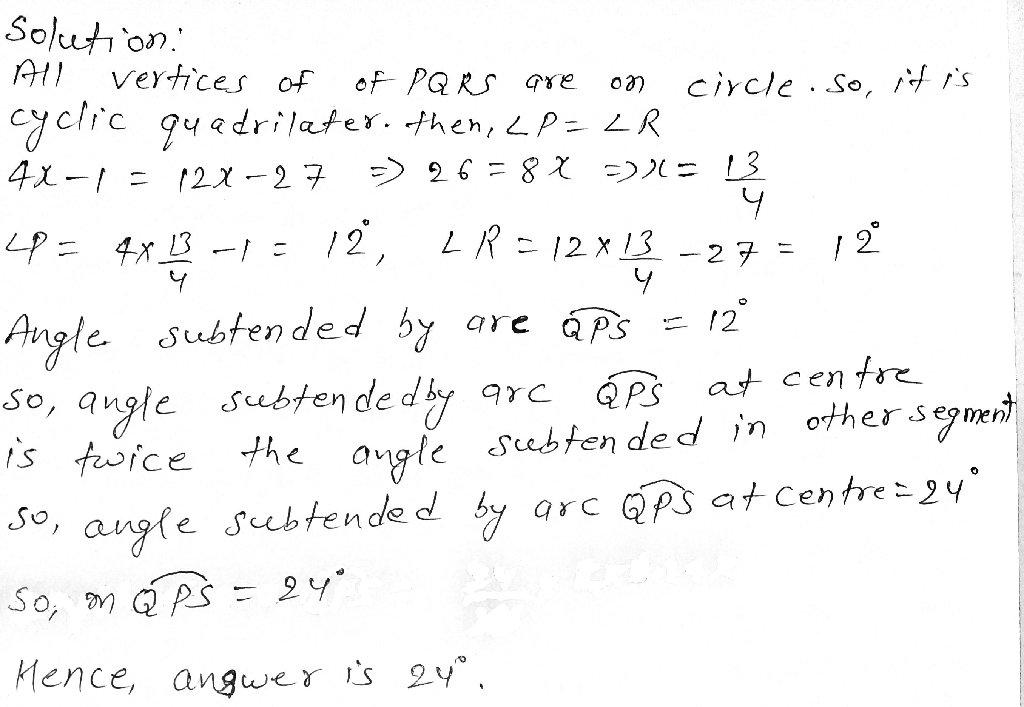 Solution:
All vertices of of PQRS are on circle. so, it is
cyclic quadrilater. then, ∠P = ∠R
4x-1 = 12x-27 ⇒ 26 = 8x ⇒ x = 13/4
∠P = 4×13/4 -1 = 12°, ∠R = 12×13/4 -27 = 12°
Angle subtended by are Q͡PS = 12°
so, angle subtended by arc Q͡PS at centre
is twice the angle subtended in other segment
so, angle subtended by arc Q͡PS at centre = 24°
so, m Q͡PS = 24°
Hence, angwer is 24°.